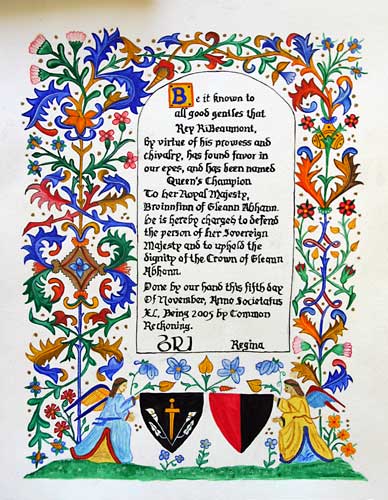 Be it known to
all good gentles that
Rey RiBeaumont,
by virtue of his prowess and
chivalry, has found favor in
our eyes, and has been named
Queen's Champion
To her Royal Majesty,
Broinnfinn of Gleann Abhann.
He is hereby charged to defend
the person of her Sovereign
Majesty and to uphold the
dignity of the Crown of Gleann
Abhann.
Done by our hand this fifth day
Of November, Anno Societatus
XL, Being 2005 by Common
Reckoning.
Regina